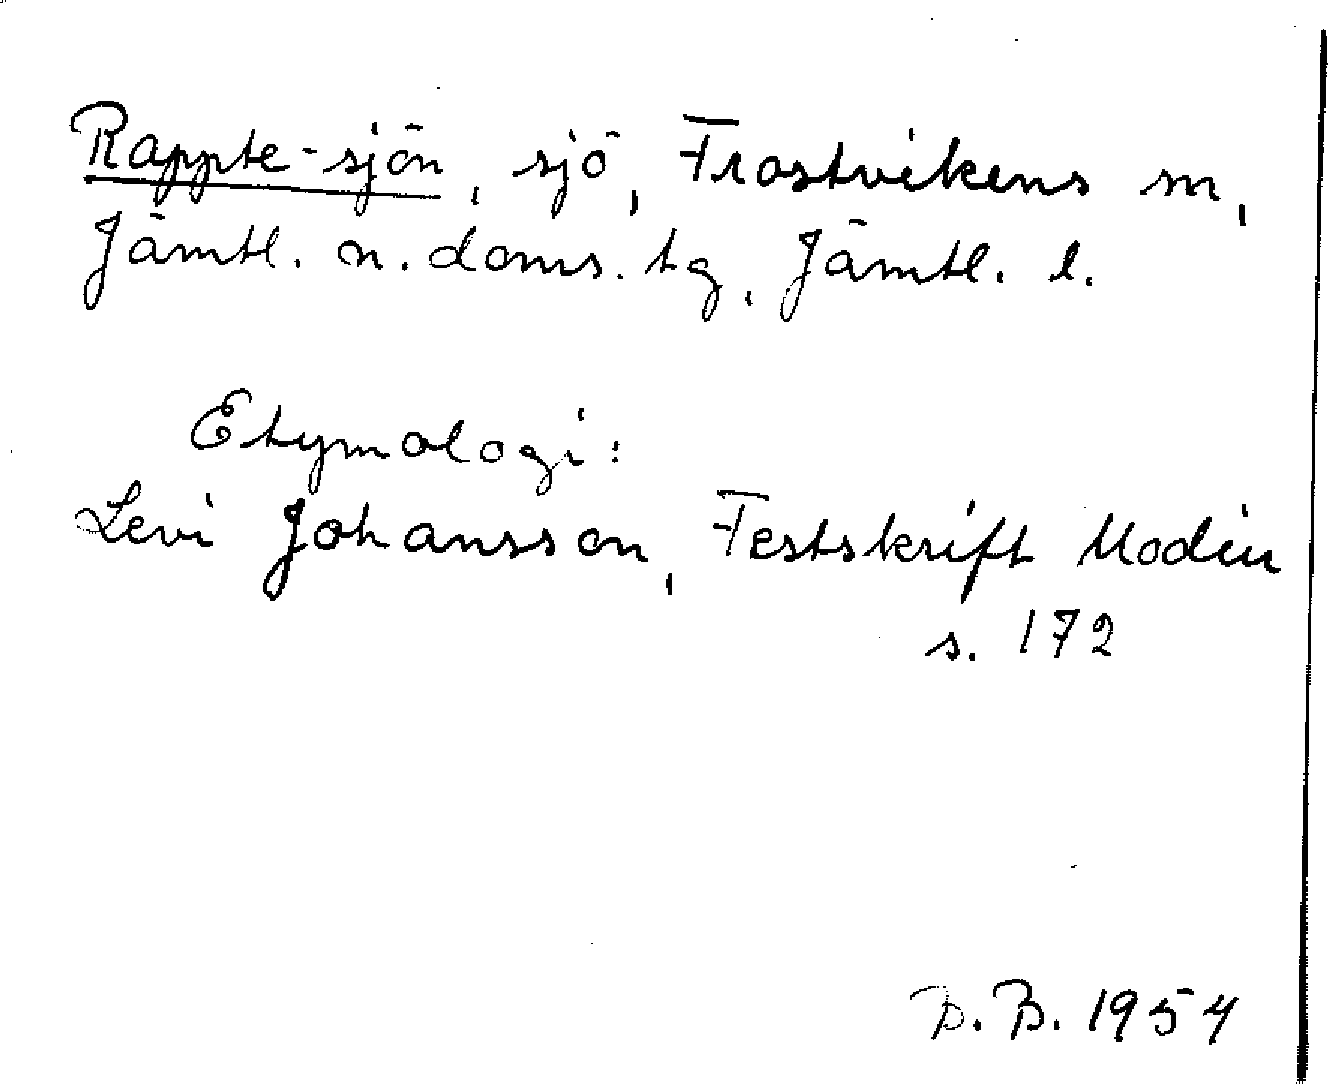 Rappte-sjön, sjö, Frostvikens sn,
Jämtl. n. doms. tg, Jämtl. l.
Etymologi:
Levi Johansson, Festskrift Modin
s. 172
B. B. 1954